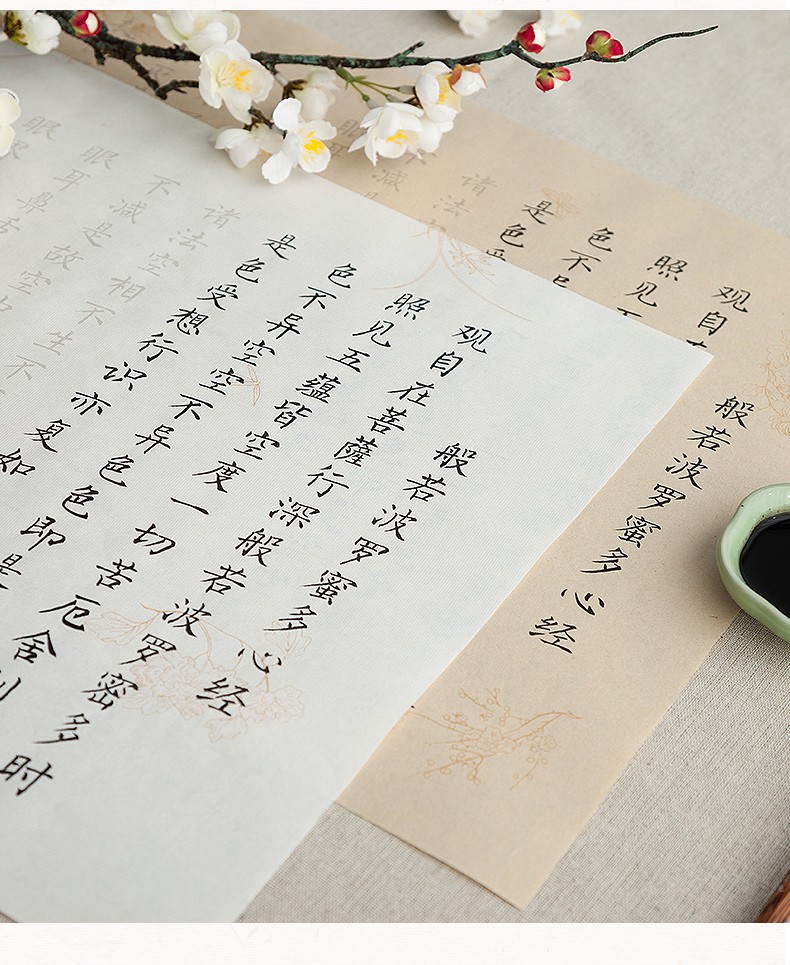 般若波罗蜜多心经
观自
照见
色不异
是色受
诸法
不减
眼
般若波罗蜜多心经
观自在菩薩行深般若波罗密多时
照见五蕴皆空度一切苦厄舍利
色不异空空不异色色即是
是色受想行识亦复如
诸法空相不生不
不减是故空中
眼耳鼻舌
眼界